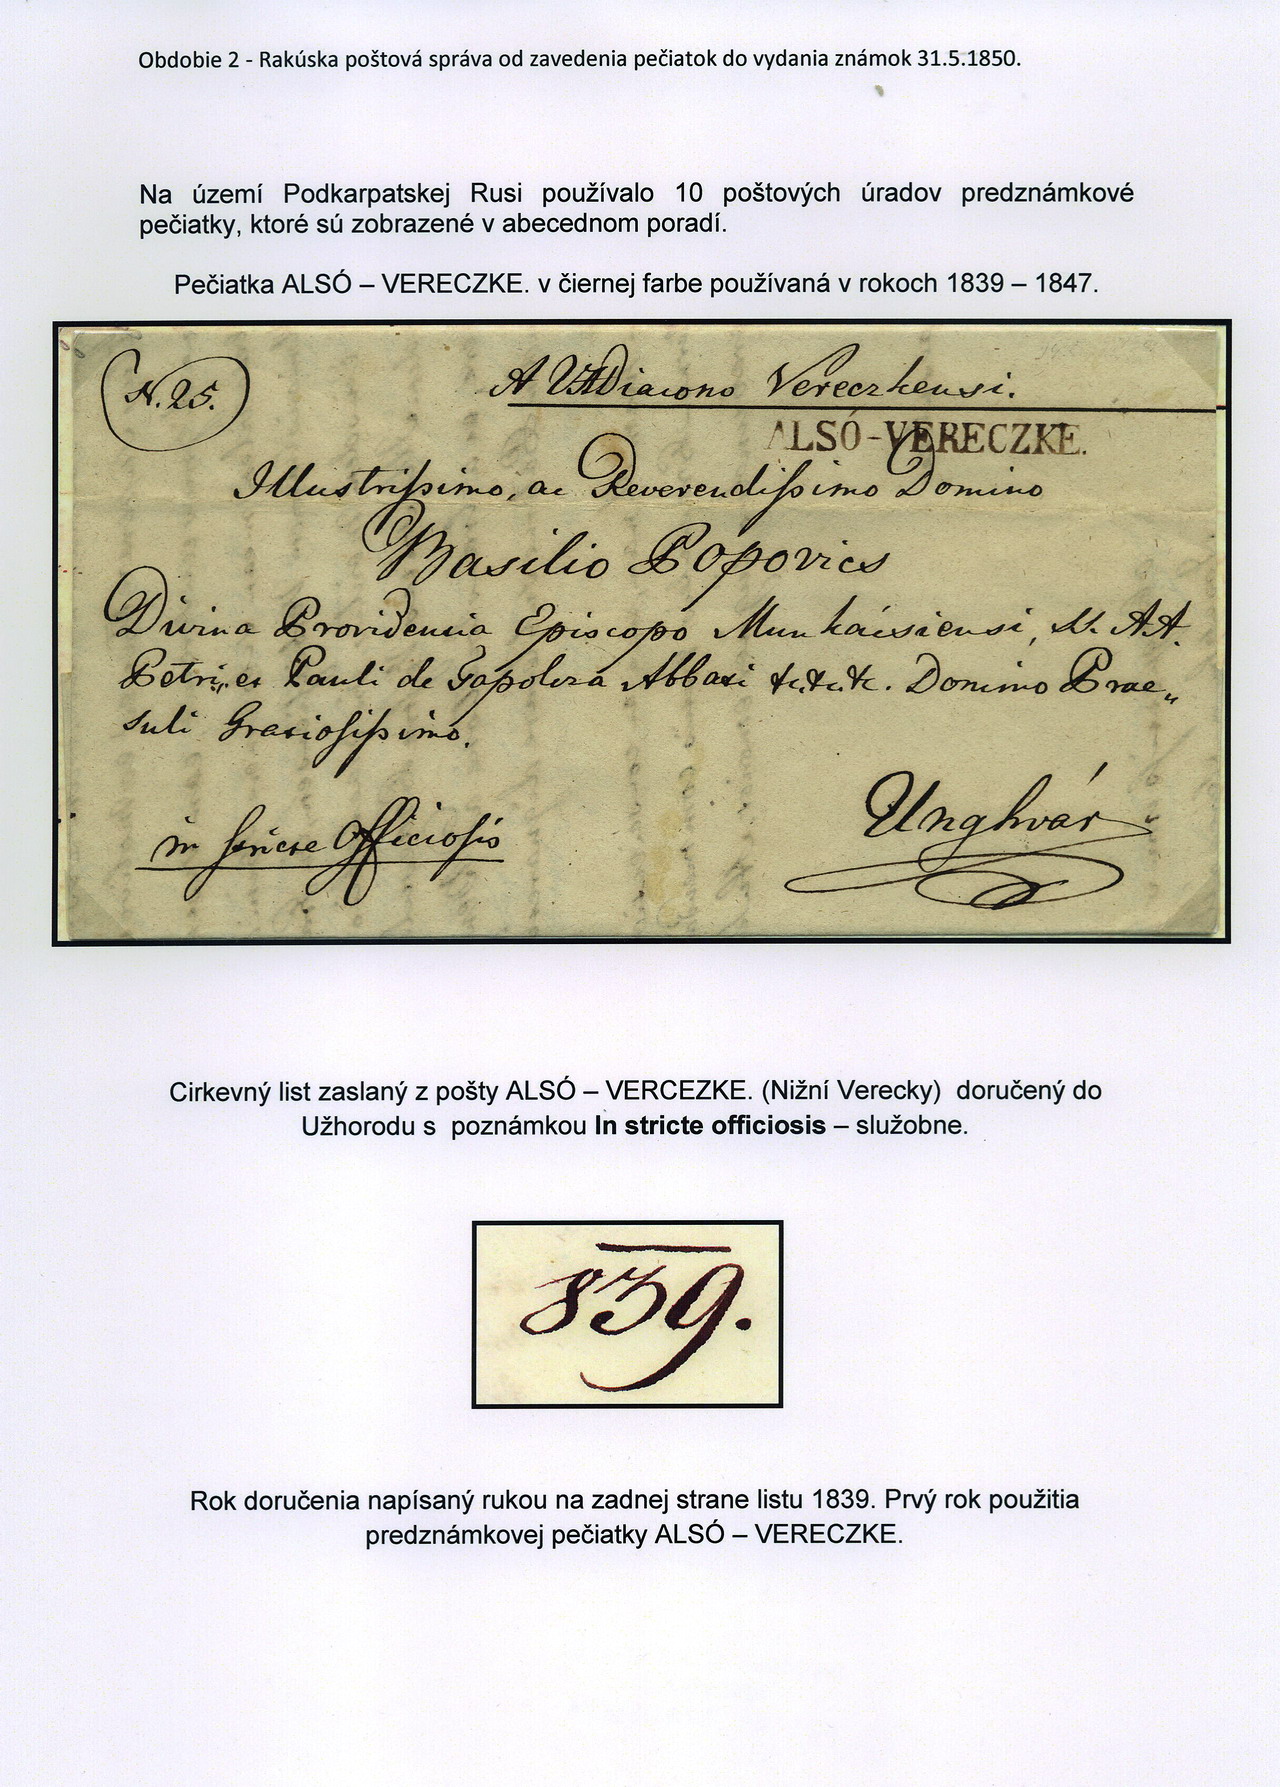 Obdobie 2 - Rakúska poštová správa od zavedenia pečiatok do vydania známok 31.5.1850.
Na území Podkarpatskej Rusi používalo 10 poštových úradov predznámkové
pečiatky, ktoré sú zobrazené v abecednom poradí.
Pečiatka ALSÓ – VERECZKE. v čiernej farbe používaná v rokoch 1839 – 1847.
N. 25.
A VADiacono Vereczkensi.
ALSÓ-VERECZKE.
Illustrissimo, ac Reverendissimo Domino
Basilio Popovics
Divina Providentia Episcopo Munkácsiensi, AA.
Petri, et Pauli de Tapolcza Abbati &c. &c. &c. Domino Prae„
suli Gratiosissimo.
in stricte Officiosis
Unghvár
Cirkevný list zaslaný z pošty ALSÓ – VERCEZKE. (Nižní Verecky) doručený do
Užhorodu s poznámkou In stricte officiosis – služobne.
839.
Rok doručenia napísaný rukou na zadnej strane listu 1839. Prvý rok použitia
predznámkovej pečiatky ALSÓ – VERECZKE.